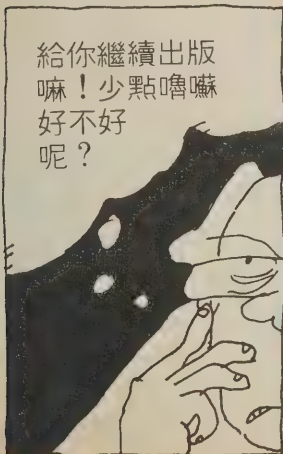 給你繼續出版
嘛！少點嚕囌
好不好
呢？